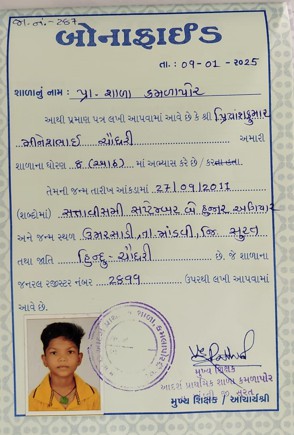 જા.નં.-287
બોનાફાઈડ
તા. : 09-01-2025
શાળાનું નામ : પ્રા. શાળા કમળાપોર
આથી પ્રમાણ પત્ર લખી આપવામાં આવે છે કે શ્રી પ્રિયાંશકુમાર
મીનેશભાઈ ચૌધરી અમારી
શાળાના ધોરણ ૪ (આઠ) માં અભ્યાસ કરે છે / કરતા હતા.
તેમની જન્મ તારીખ આંકડામાં 27/09/2011
(શબ્દોમાં) સત્તાવીસમી સપ્ટેમ્બર બે હજાર અગિયાર
અને જન્મ સ્થળ ઉમરસાડી, તા. માંડવી, જિ. સુરત
તથા જાતિ હિન્દુ-ચૌધરી છે. જે શાળાના
જનરલ રજીસ્ટર નંબર 2899 ઉપરથી લખી આપવામાં
આવે છે.
મુખ્ય શિક્ષક
આદર્શ પ્રાથમિક શાળા કમળાપોર
મુખ્ય શિક્ષક / આચાર્યશ્રી